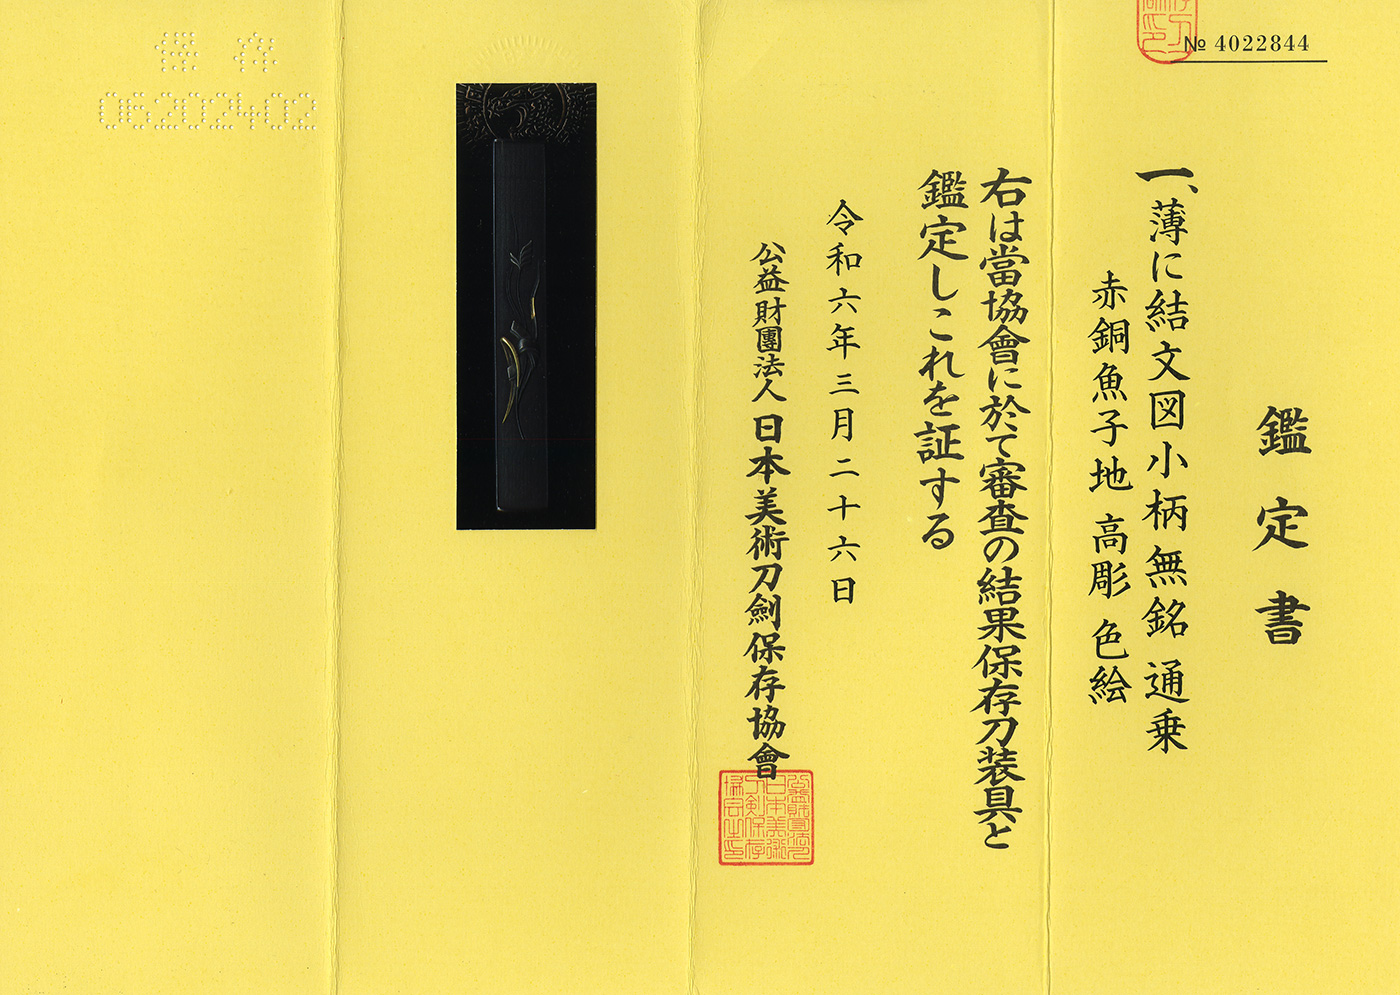 № 4022844
鑑定書
一、薄に結文図小柄 無銘 通乗
赤銅魚子地 高彫 色絵
右は當協會に於て審査の結果保存刀装具と
鑑定しこれを証する
令和六年三月二十六日
公益財團法人 日本美術刀劍保存協會
公益財団法人
日本美術
刀剣保存
協会之印
保存
06202402